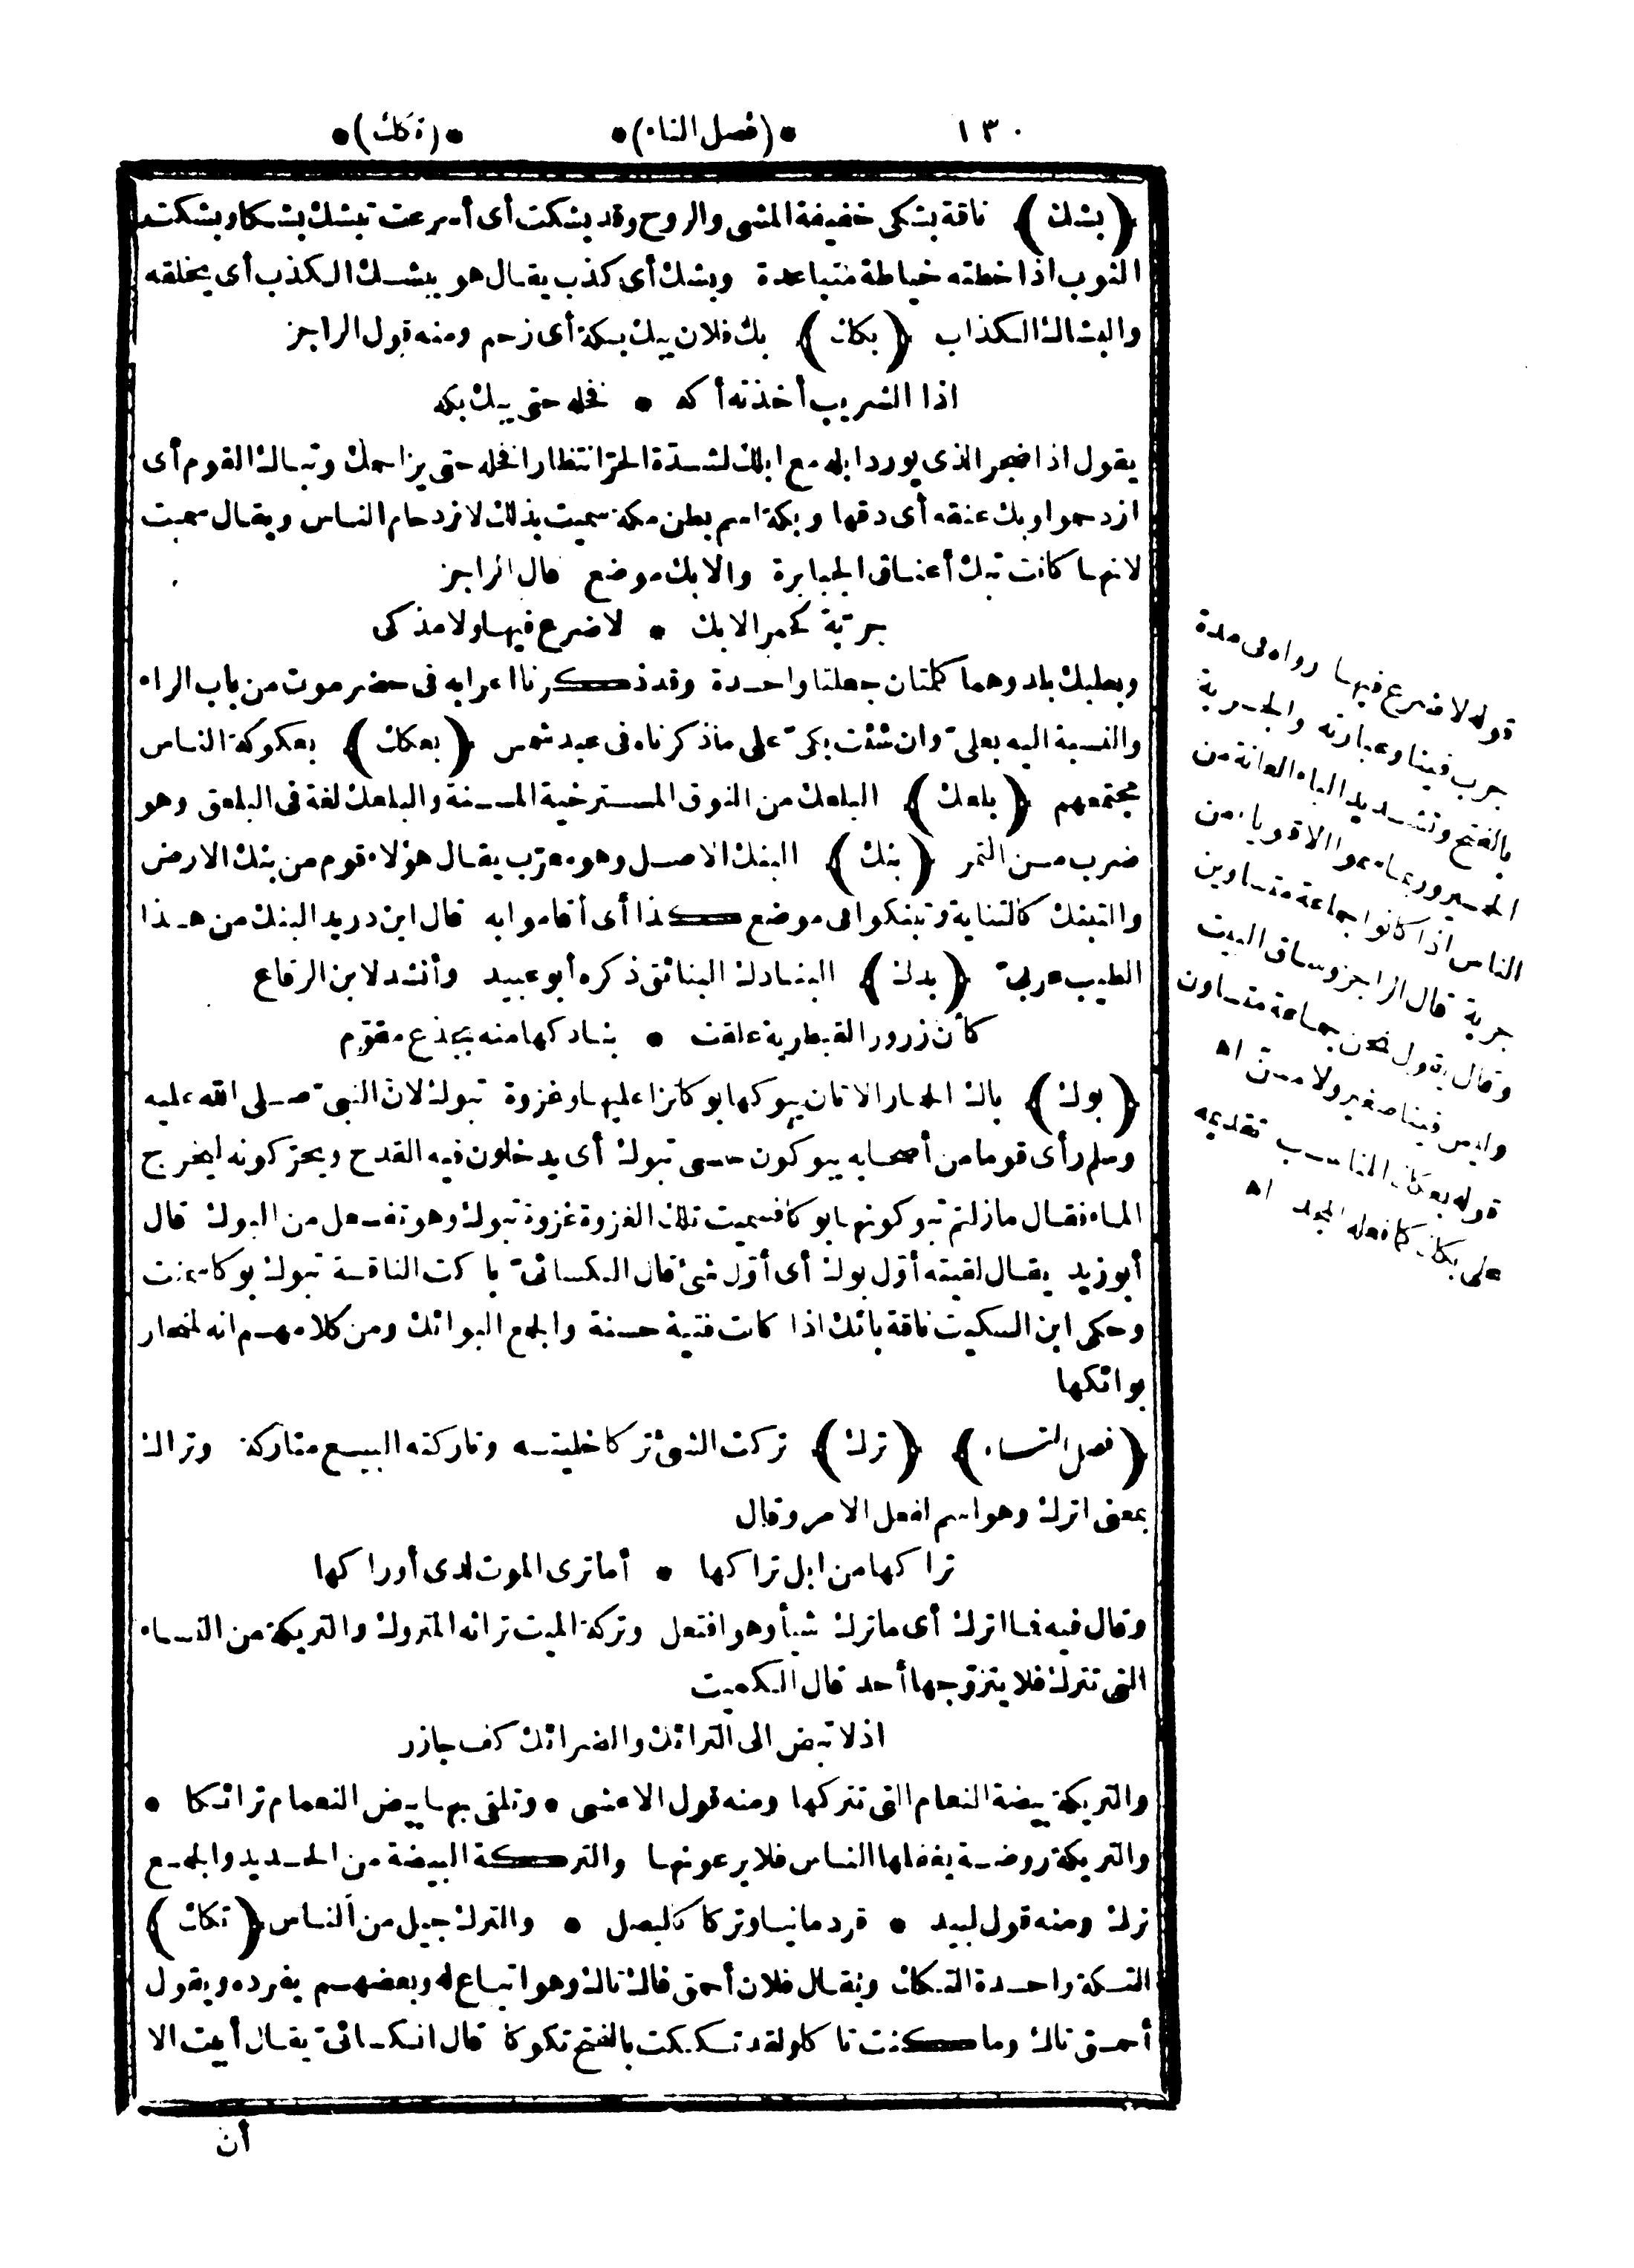 ١٣٠ *(فصل التاء)* *(تكك)*
﴿بشك﴾ ناقة بشكى خفيفة المشى والروح وقد بشكت أى أسرعت تبشك بشكا وبشكت
الثوب اذا خطته خياطة متباعدة وبشك أى كذب يقال هو يبشك الكذب أى يخلقه
والبشاك الكذاب ﴿بكك﴾ بك فلان يبك بكة أى زحم ومنه قول الراجز
اذا الشريب أخذته أكه * فخله حتى يبك بكه
يقول اذا ضجر الذى يورد ابله مع ابلك لشدة الحر انتظارا فخله حتى يزاحمك وتباك القوم أى
ازدحموا وبك عنقه أى دقها وبكة اسم بطن مكة سميت بذلك لازدحام الناس ويقال سميت
لانها كانت تبك أعناق الجبابرة والابك موضع قال الراجز
جربة كحمر الابك * لا ضرع فيها ولا مذكى
وبعلبك بلد وهما كلمتان جعلتا واحدة وقد ذكرنا اعرابه فى حضرموت من باب الراء
والنسبة اليه بعلىّ وان شئت بكىّ على ما ذكرناه فى عبد شمس ﴿بعكك﴾ بعكوكة الناس
مجتمعهم ﴿بلعك﴾ البلعك من النوق المسترخية المسنة والبلعك لغة فى البلعق وهو
ضرب من التمر ﴿بنك﴾ البنك الاصل وهو معرّب يقال هؤلاء قوم من بنك الارض
والتبنك كالتناية وتبنكوا فى موضع كذا أى أقاموا به قال ابن دريد البنك من هذا
الطيب عربىّ ﴿بدك﴾ البنادك البنائق ذكره أبو عبيد وأنشد لابن الرقاع
كأن زرور القبطرية علقت * بنادكها منه بجذع مقوّم
﴿بوك﴾ باك الحمار الاتان يبوكها بوكا نزا عليها وغزوة تبوك لان النبىّ صلى الله عليه
وسلم رأى قوما من أصحابه يبوكون حسى تبوك أى يدخلون فيه القدح ويحرّكونه ليخرج
الماء فقال ما زلتم تبوكونها بوكا فسميت تلك الغزوة غزوة تبوك وهو تفعل من البوك قال
أبو زيد يقال لقيته أوّل بوك أى أوّل شئ قال الكسائىّ باكت الناقة تبوك بوكا سمنت
وحكى ابن السكيت ناقة بائك اذا كانت فتية حسنة والجمع البوائك ومن كلامهم انه لمنحار
بوائكها
﴿فصل التاء﴾ ﴿ترك﴾ تركت الشئ تركا خليته وتاركته البيع متاركة وتراك
بمعنى اترك وهو اسم لفعل الامر وقال
تراكها من ابل تراكها * أما ترى الموت لدى أوراكها
وقال فيه فما اترك أى ما ترك شيأ وهو افتعل وتركة الميت تراثه المتروك والتريكة من النساء
التى تترك فلا يتزوّجها أحد قال الكميت
اذ لا تبض الى الترائك والضرائك كف جازر
والتريكة بيضة النعام التى تتركها ومنه قول الاعشى * وتلقى بها بيض النعام ترائكا *
والتريكة روضة يغفلها الناس فلا يرعونها والتركة البيضة من الحديد والجمع
ترك ومنه قول لبيد * قردمانيا وتركا كالبصل * والترك جيل من الناس ﴿تكك﴾
التكة واحدة التكك ويقال فلان أحمق فاك تاك وهو اتباع له وبعضهم يفرده ويقول
أحمق تاك وما كنت تاكا ولقد تككت بالفتح تكوكا قال الكسائىّ يقال أبيت الا
أن
قوله لا ضرع فيها رواه فى مادة
جرب فينا وعبارته والجربة
بالفتح وتشديد الباء العانة من
الحمير وربما سموا الاقوياء من
الناس اذا كانوا جماعة متساوين
جربة قال الراجز وساق البيت
وقال يقول نحن جماعة متساون
وليس فينا صغير ولا مسن اه
قوله بعكك المناسب تقديمه
على بكك كما فعله المجد اه